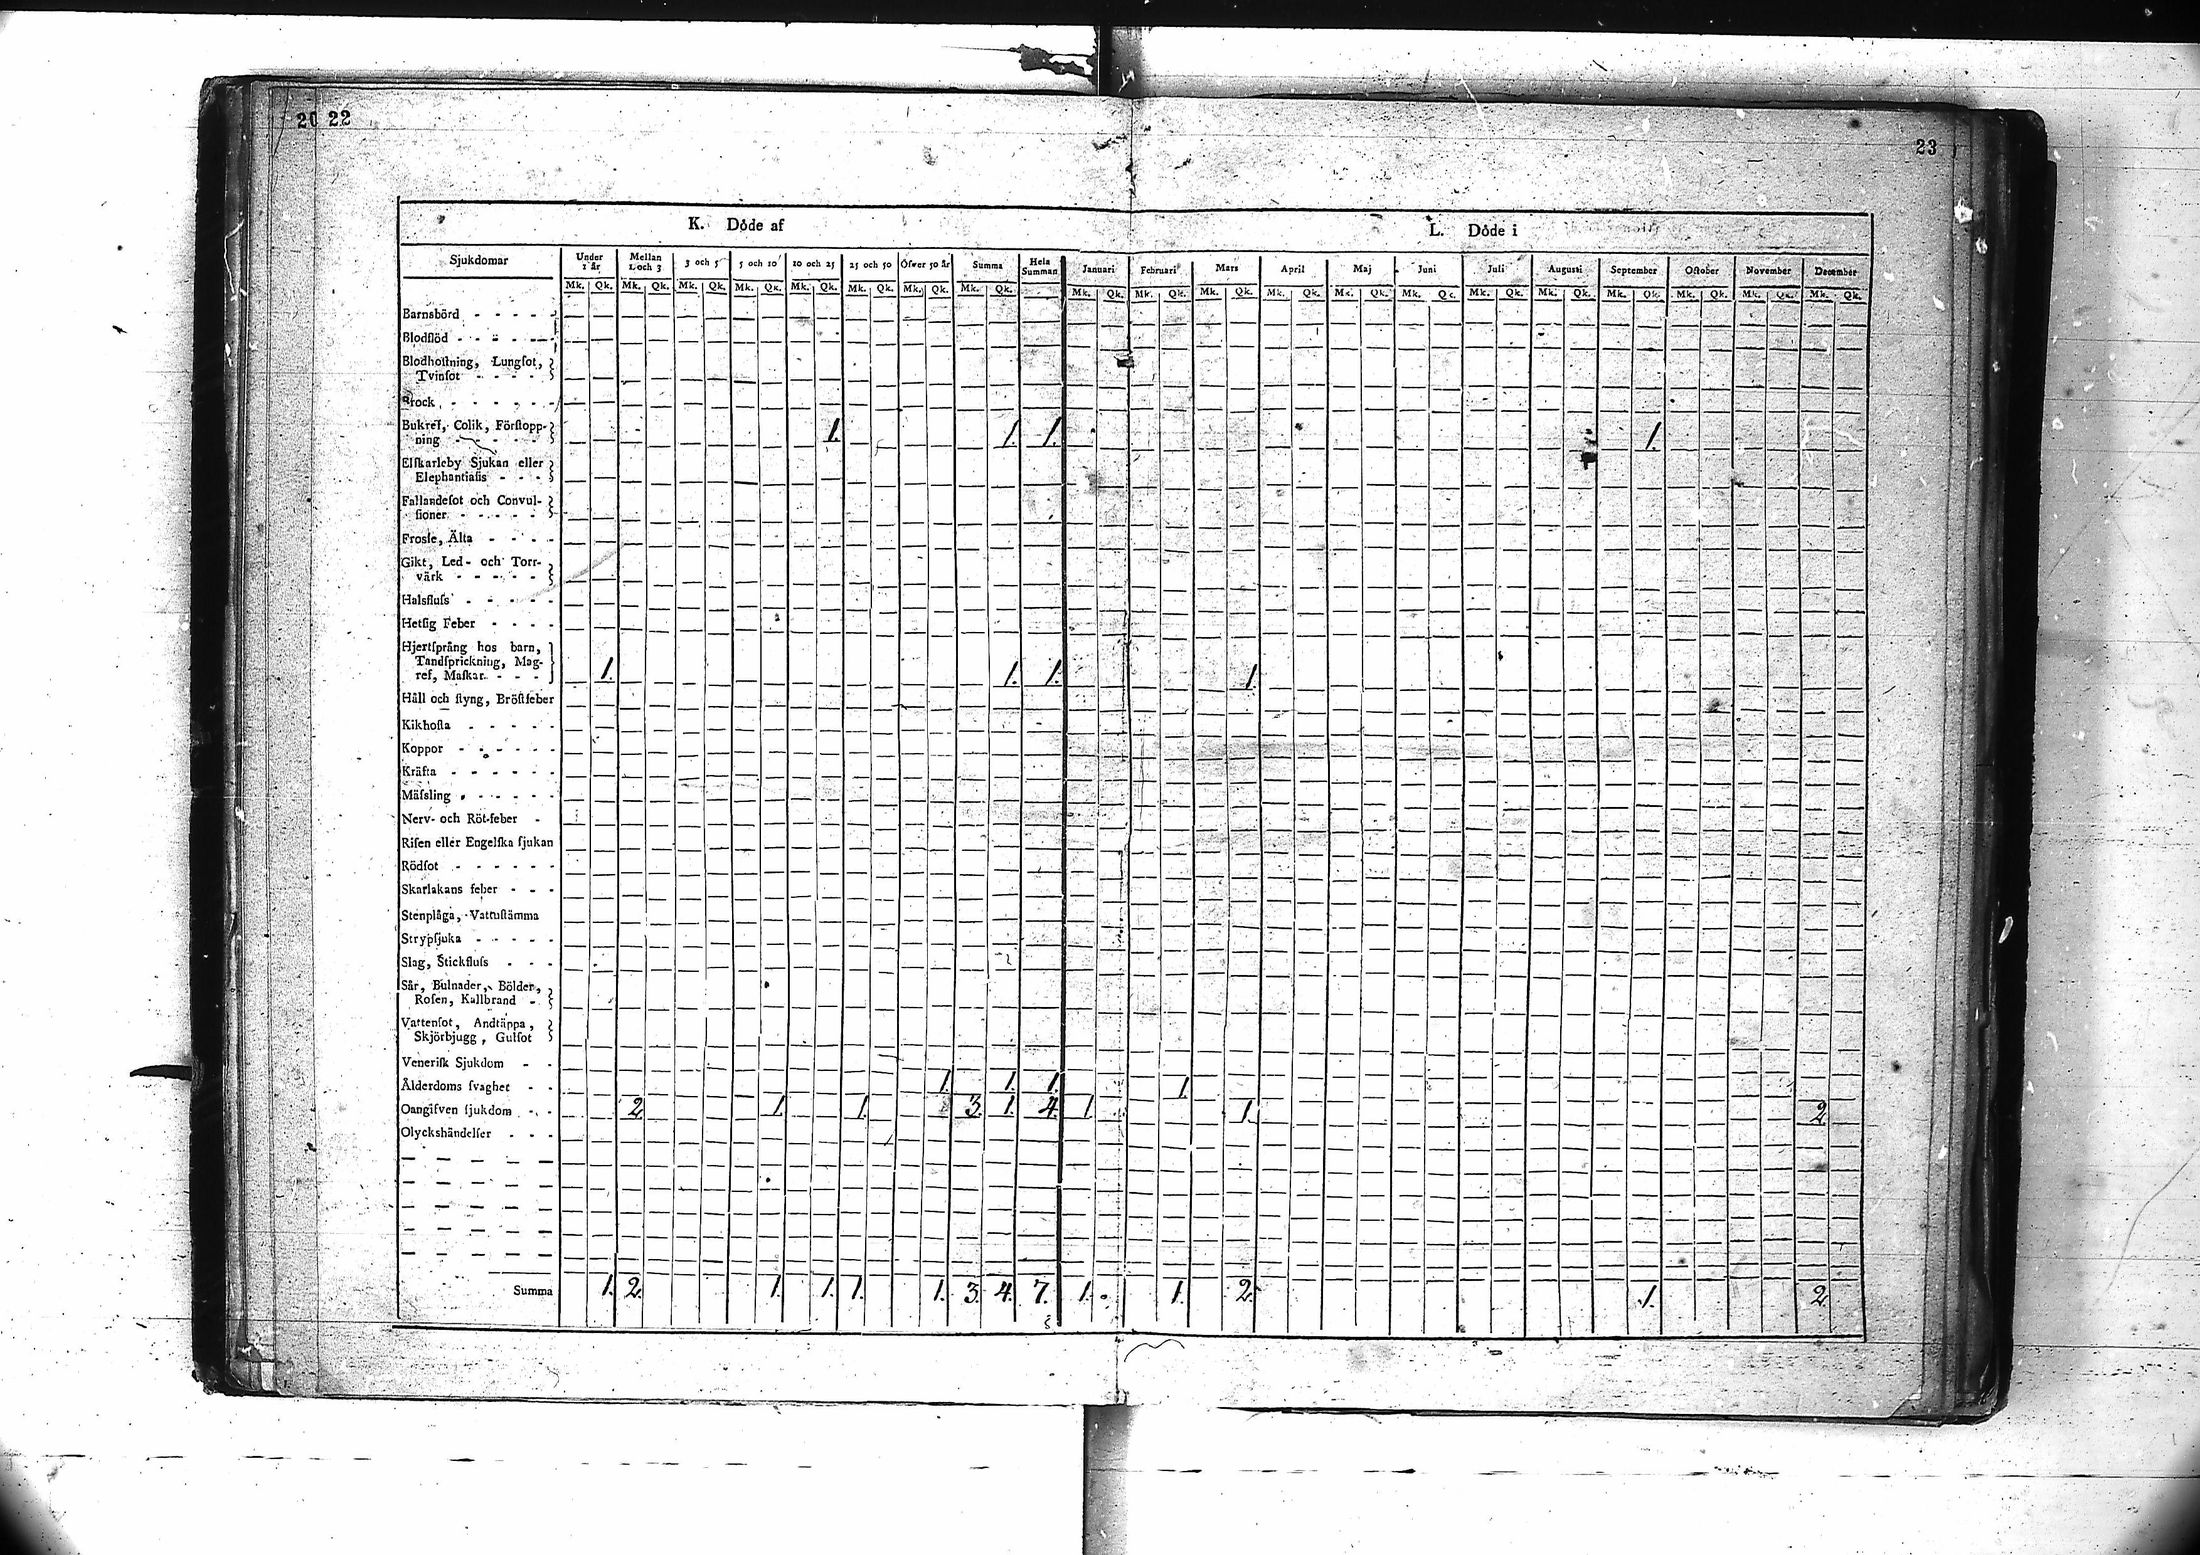 20 22
23
K. Dôde af
L. Dôde i
Sjukdomar
Under 1 år
Mellan 1 och 3
3 och 5
5 och 10
10 och 25
25 och 50
Öfwer 50 år
Summa
Hela Summan
Januari
Februari
Mars
April
Maj
Juni
Juli
Augusti
September
October
November
December
Mk. Qk. Mk. Qk. Mk. Qk. Mk. Qk. Mk. Qk. Mk. Qk. Mk. Qk. Mk. Qk. Mk. Qk. Mk. Qk. Mk. Qk. Mk. Qk. Mk. Qk. Mk. Qk. Mk. Qk. Mk. Qk. Mk. Qk. Mk. Qk. Mk. Qk. Mk. Qk.
Barnsbörd - - - -
Blodflöd - - - -
Blodhoſtning, Lungſot,
Tvinſot - - - -
Brock - - - - -
Bukref, Colik, Förſtopp-
ning - - - - 1. 1. 1. 1.
Elfkarleby Sjukan eller
Elephantiaſis - - -
Fallandeſot och Convul-
ſioner - - - - -
Frosſe, Älta - - - -
Gikt, Led- och Torr-
värk - - - - -
Halsfluſs - - - - -
Hetſig Feber - - - -
Hjertſprång hos barn,
Tandſprickning, Mag-
ref, Maſkar - - - 1. 1. 1. 1.
Håll och ſtyng, Bröſtfeber
Kikhoſta - - - - -
Koppor - - - - - -
Kräfta - - - - - -
Mäſsling - - - - -
Nerv- och Röt-feber -
Riſen eller Engelſka ſjukan
Rödſot - - - - -
Skarlakans feber - - -
Stenplåga, Vattuſtämma
Strypſjuka - - - - -
Slag, Stickfluſs - - -
Sår, Bulnader, Bölder,
Roſen, Kallbrand -
Vattenſot, Andtäppa,
Skjörbjugg, Gulſot
Veneriſk Sjukdom - -
Ålderdoms ſvaghet - - 1. 1. 1. 1.
Oangifven ſjukdom - - 2. 1. 1. 3. 1. 4. 1. 1. 2.
Olyckshändelſer - - -
Summa 1. 2. 1. 1. 1. 1. 3. 4. 7. 1. 1. 2. 1. 2.